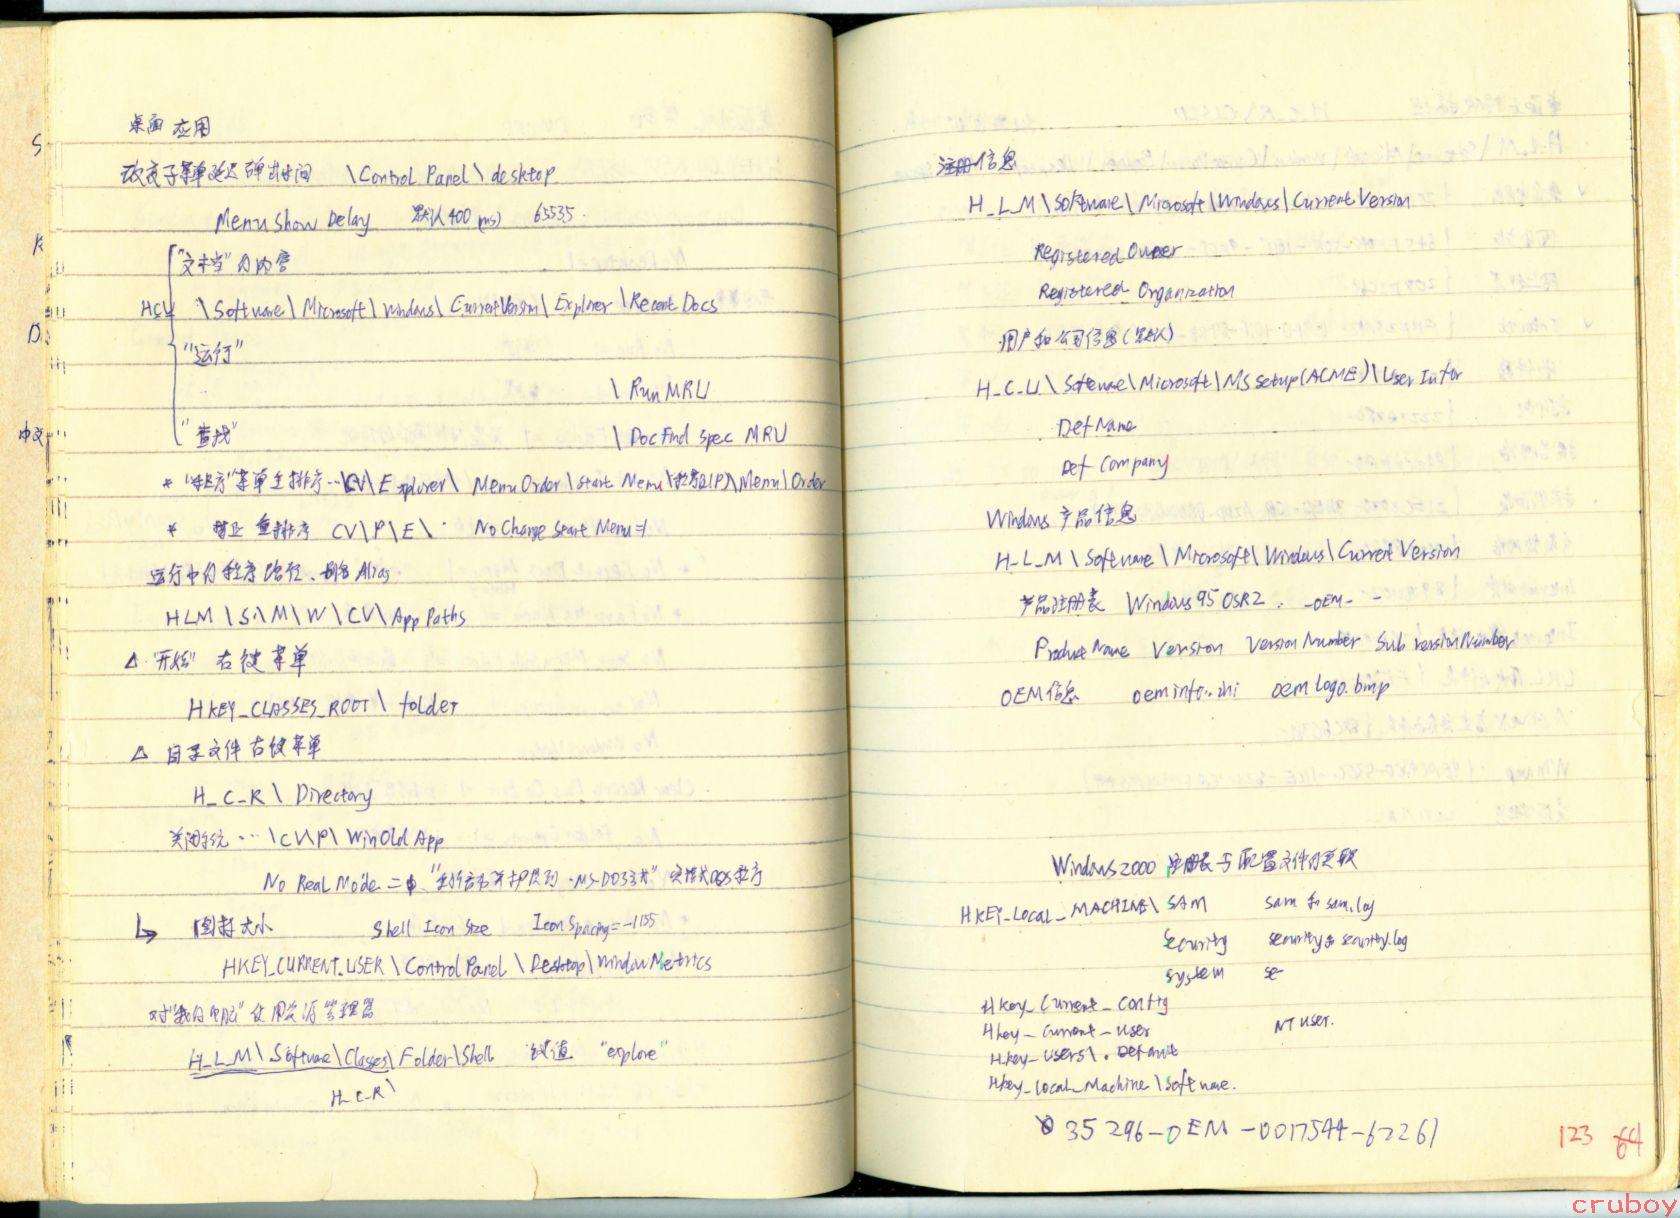 桌面 应用
改变子菜单延迟弹出时间 \Control Panel\desktop
Menu Show Delay 默认400 (ms) 65535.
"文档" 的内容
HCU \Software\Microsoft\Windows\CurrentVersion\Explorer\Recent Docs
"运行"
\Run MRU
"查找" \Doc Find Spec MRU
* "程序"菜单重排序…\CV\Explorer\ Menu Order\Start Menu\程序(&P)\Menu\Order
* 禁止 重排序 CV\P\E\ No Change Start Menu=1
运行中的程序路径、别名 Alias
HLM\S\M\W\CV\App Paths
△ "开始" 右键菜单
HKEY_CLASSES_ROOT\folder
△ 目录文件右键菜单
H_C_R\ Directory
关闭系统 … \CV\P\WinOld App
No Real Mode = "重新启动并切换到 MS-DOS方式" 实模式DOS程序
图标大小 Shell Icon Size Icon Spacing=-1155
HKEY_CURRENT_USER\Control Panel\Desktop\WindowMetrics
对"我的电脑"使用资源管理器
H_L_M\Software\Classes\Folder\Shell 键值 "explore"
H_C_R\
S
K
D
中文
注册信息
H_L_M\Software\Microsoft\Windows\Current Version
Registered Owner
Registered Organization
用户和公司信息(默认)
H_C_U\Software\Microsoft\MS Setup(ACME)\User Infor
Def Name
Def Company
Windows 产品信息
H_L_M\Software\Microsoft\Windows\Current Version
产品注册表 Windows 95 OSR2. -OEM- -
Product Name Version Version Number Sub version Number
OEM信息 oeminfo.ini oemlogo.bmp
Windows2000 注册表与配置文件的关联
HKEY_Local_MACHINE\ SAM sam 和 sam.log
Security security和 security.log
system se-
Hkey_Current_Config
Hkey_Current_User NT USER.
Hkey_Users\.Default
Hkey_Local_Machine\Software.
35296-OEM-0017544-62261
123 64
cruboy